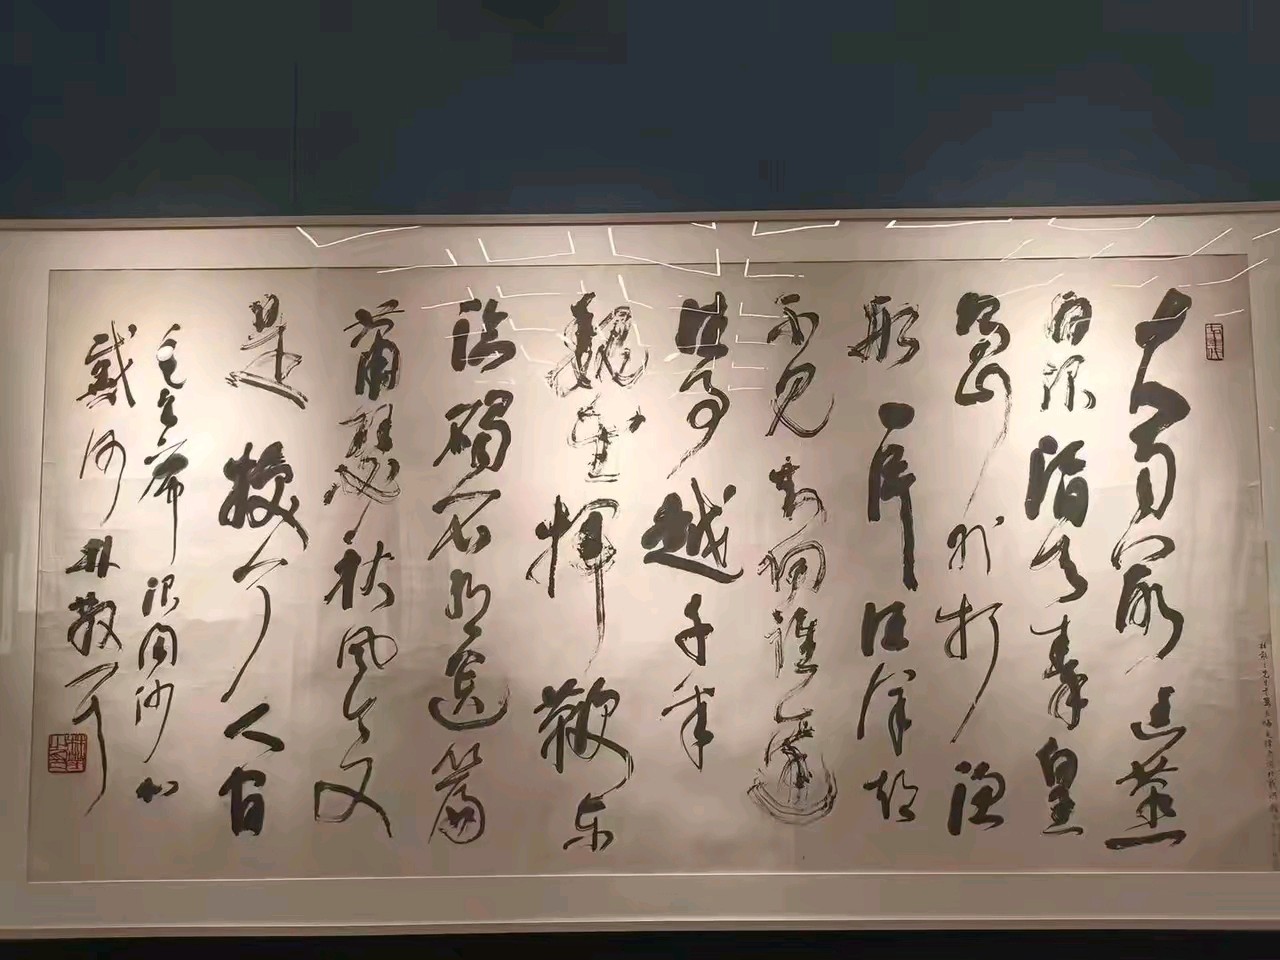 大雨落幽燕
白浪滔天秦皇
島外打漁
船一片汪洋都
不見知向誰邊
往事越千年
魏武揮鞭東
臨碣石有遺篇
蕭瑟秋風今又
是換了人间
毛主席浪淘沙北
戴河 林散耳